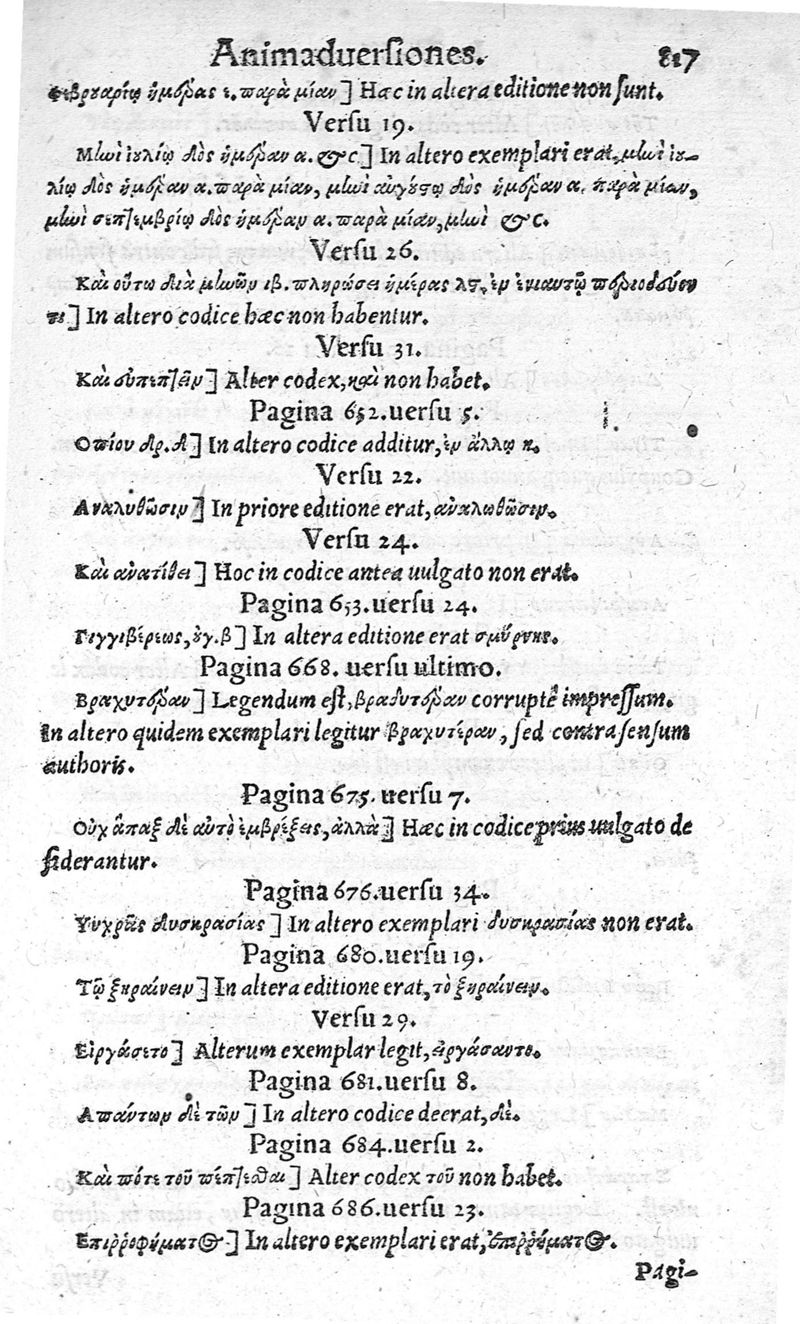 Animaduersiones. 817
Φεβρουαρίῳ ἡμέρας ι. παρὰ μίαν] Hæc in altera editione non sunt.
Versu 19.
Μηνὶ ἰουλίῳ δὸς ἡμέραν α. &c.] In altero exemplari erat, μηνὶ ἰου-
λίῳ δὸς ἡμέραν α. παρὰ μίαν, μηνὶ αὐγούστῳ δὸς ἡμέραν α. παρὰ μίαν,
μηνὶ σεπτεμβρίῳ δὸς ἡμέραν α. παρὰ μίαν, μηνὶ &c.
Versu 26.
Καὶ οὕτω διὰ μηνῶν ιβ. πληρώσει ἡμέρας ἐν ἐνιαυτῷ
] In altero codice hæc non habentur.
Versu 31.
Καὶ συπεπτεῖν] Alter codex, καὶ non habet.
Pagina 652. uersu 5.
Οπίου δρ. δ] In altero codice additur, ἐν ἄλλῳ κ.
Versu 22.
Αναλυθῶσιν] In priore editione erat, ἀναλωθῶσιν.
Versu 24.
Καὶ ἀνατίθει] Hoc in codice antea uulgato non erat.
Pagina 653. uersu 24.
Γιγγιβέρεως, ὀγ. β] In altera editione erat σμύρνης.
Pagina 668. uersu ultimo.
Βραχυτέραν] Legendum est, βραδυτέραν corruptè impressum.
In altero quidem exemplari legitur βραχυτέραν, sed contra sensum
authoris.
Pagina 675. uersu 7.
Οὐχ ἅπαξ δὲ αὐτὸ ἐμβρέξεις, ἀλλὰ] Hæc in codice prius uulgato de
siderantur.
Pagina 676. uersu 34.
Ψυχρᾶς δυσκρασίας] In altero exemplari δυσκρασίας non erat.
Pagina 680. uersu 19.
Τῷ ξηραίνειν] In altera editione erat, τὸ ξηραίνειν.
Versu 29.
Εἰργάσετο] Alterum exemplar legit, ἐργάσαντο.
Pagina 681. uersu 8.
Απάντων δὲ τῶν] In altero codice deerat, δὲ.
Pagina 684. uersu 2.
Καὶ πότε τοῦ πέπτεσθαι] Alter codex τοῦ non habet.
Pagina 686. uersu 23.
Επιῤῥοφήματος] In altero exemplari erat,
Pagi-